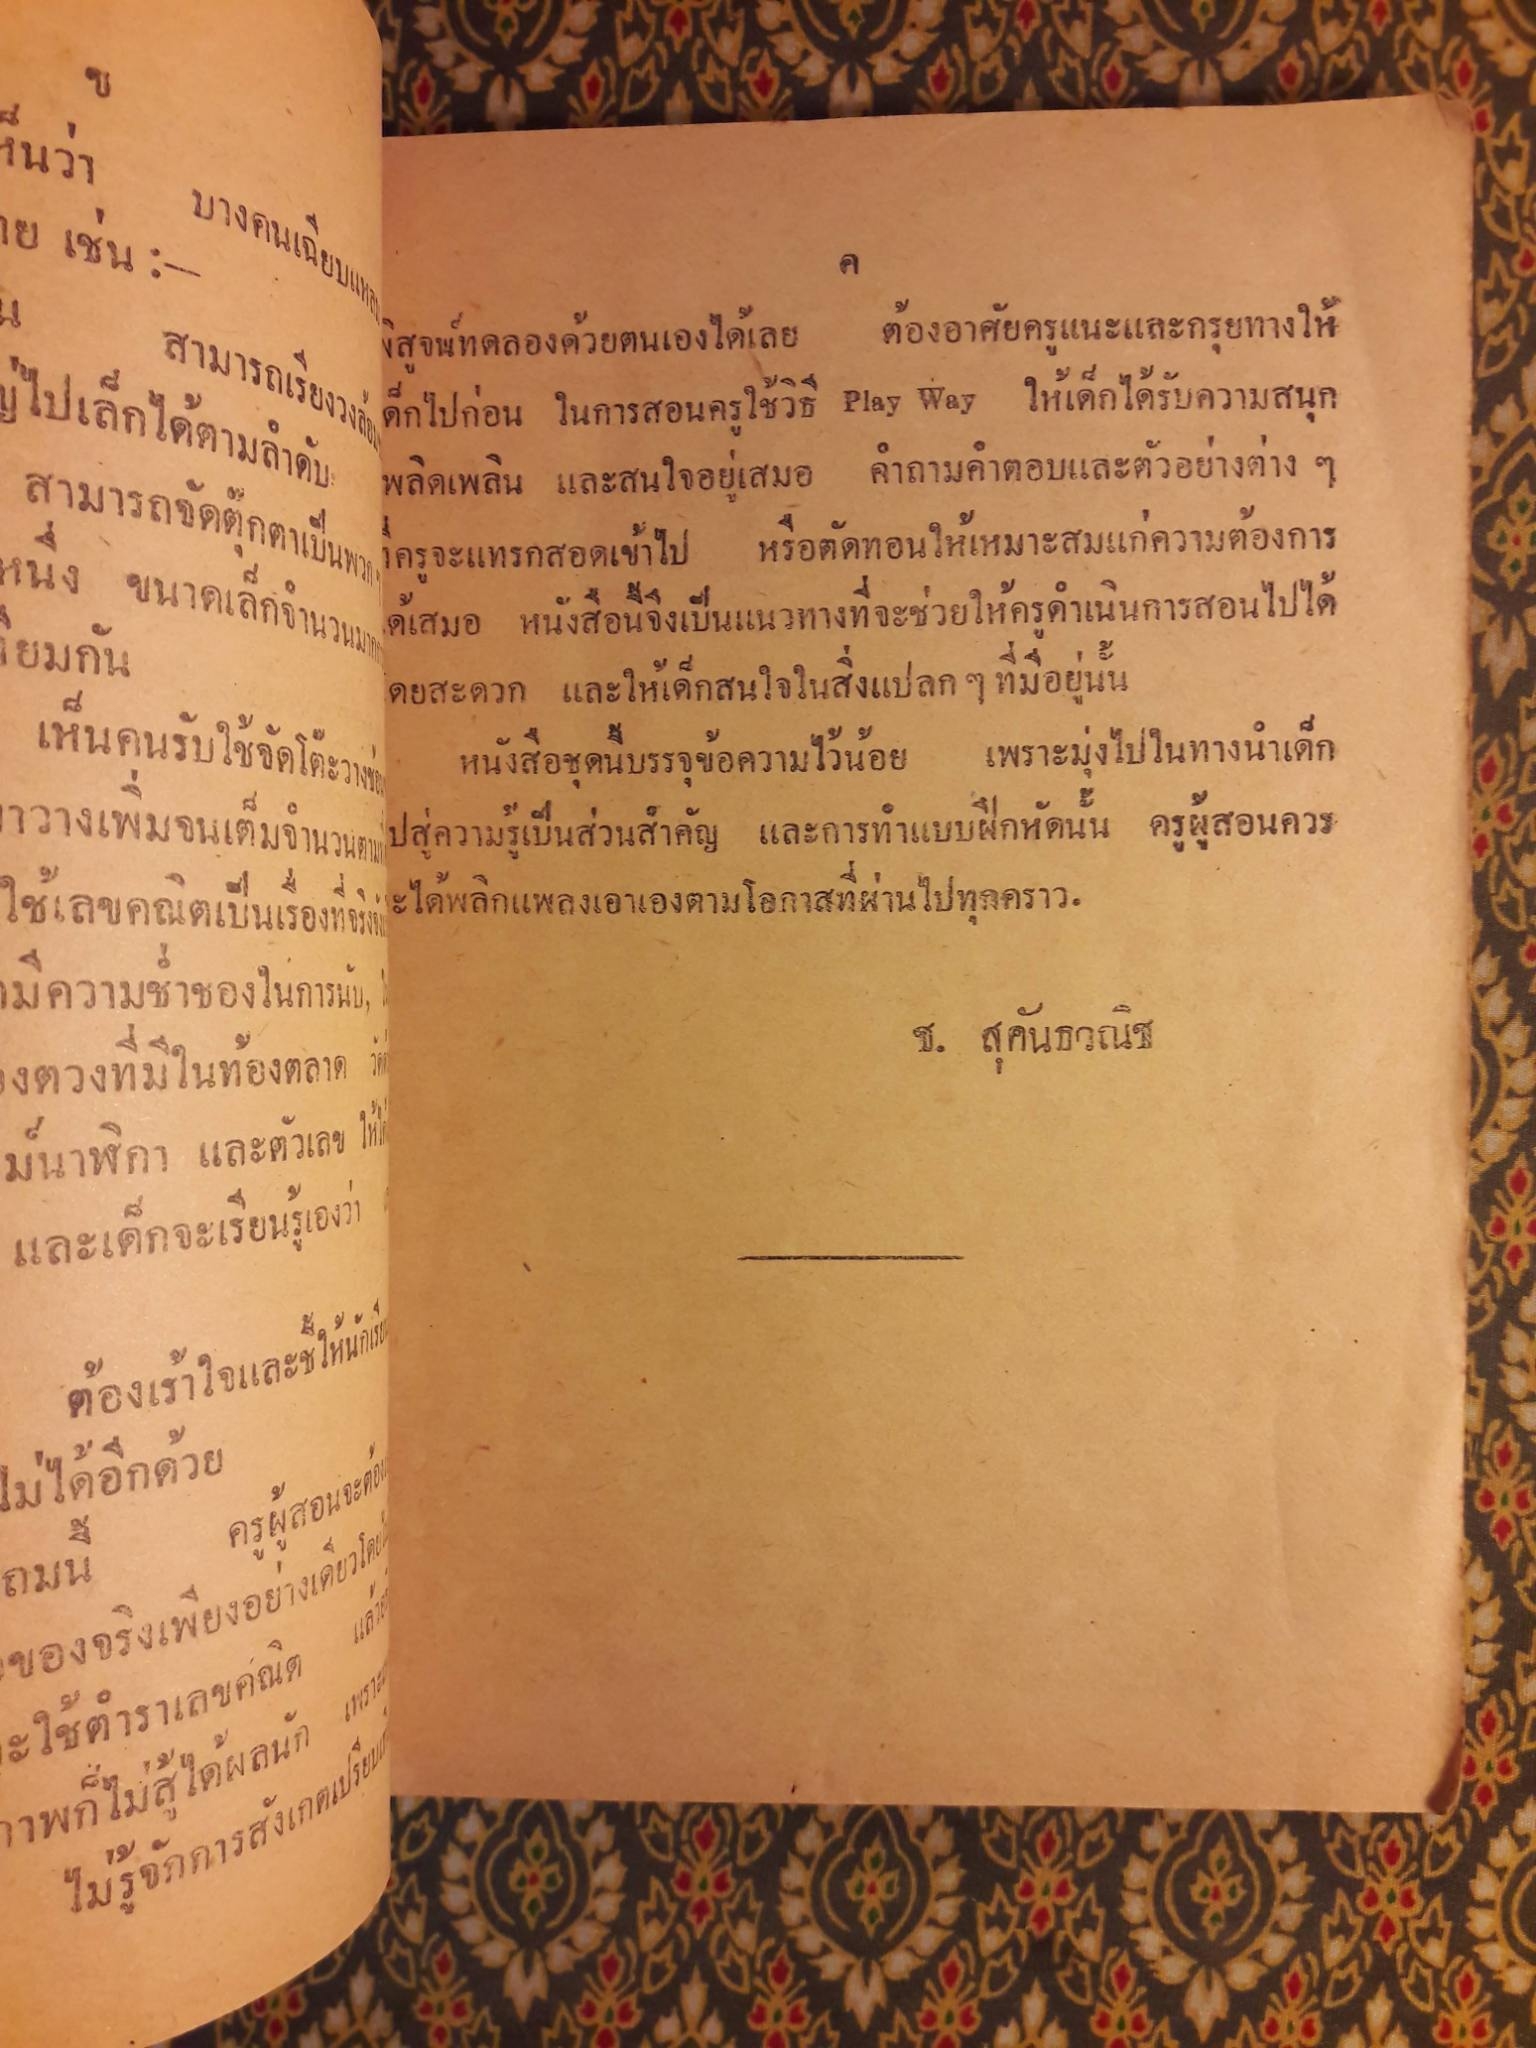 ข
เห็นว่า บางคนเฉียบแหลม
เช่น :—
สามารถเรียงวงล้อ
ไปเล็กได้ตามลำดับ
สามารถจัดตุ๊กตาเป็นพวก ๆ
หนึ่ง ขนาดเล็กจำนวนมาก
เห็นคนรับใช้จัดโต๊ะวาง
วางเพิ่มจนเต็มจำนวนตาม
ใช้เลขคณิตเป็นเรื่องที่จริงจัง
มีความช่ำชองในการนับ,
ตวงที่มีในท้องตลาด
นาฬิกา และตัวเลข
และเด็กจะเรียนรู้เองว่า
ต้องเร้าใจและชี้ให้นักเรียน
ไม่ได้อีกด้วย
ครูผู้สอนจะต้อง
ของจริงเพียงอย่างเดียวโดย
ใช้ตำราเลขคณิต
ภาพก็ไม่สู้ได้ผลนัก
ไม่รู้จักการสังเกตเปรียบ
ค
พิสูจน์ทดลองด้วยตนเองได้เลย ต้องอาศัยครูแนะและกรุยทางให้
เด็กไปก่อน ในการสอนครูใช้วิธี Play Way ให้เด็กได้รับความสนุก
เพลิดเพลิน และสนใจอยู่เสมอ คำถามคำตอบและตัวอย่างต่าง ๆ
ที่ครูจะแทรกสอดเข้าไป หรือตัดทอนให้เหมาะสมแก่ความต้องการ
ได้เสมอ หนังสือนี้จึงเป็นแนวทางที่จะช่วยให้ครูดำเนินการสอนไปได้
โดยสะดวก และให้เด็กสนใจในสิ่งแปลก ๆ ที่มีอยู่นั้น
หนังสือชุดนี้บรรจุข้อความไว้น้อย เพราะมุ่งไปในทางนำเด็ก
ไปสู่ความรู้เป็นส่วนสำคัญ และการทำแบบฝึกหัดนั้น ครูผู้สอนควร
จะได้พลิกแพลงเอาเองตามโอกาสที่ผ่านไปทุกคราว.
ช. สุคันธวณิช